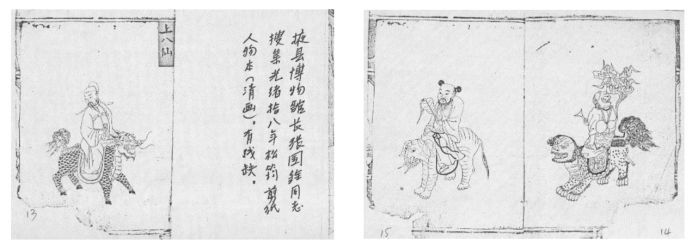 上八仙
掖县博物馆长张国维同志
搜集光绪拾八年松筠剪纸
人物本（清画）。有残缺。
13
15
14